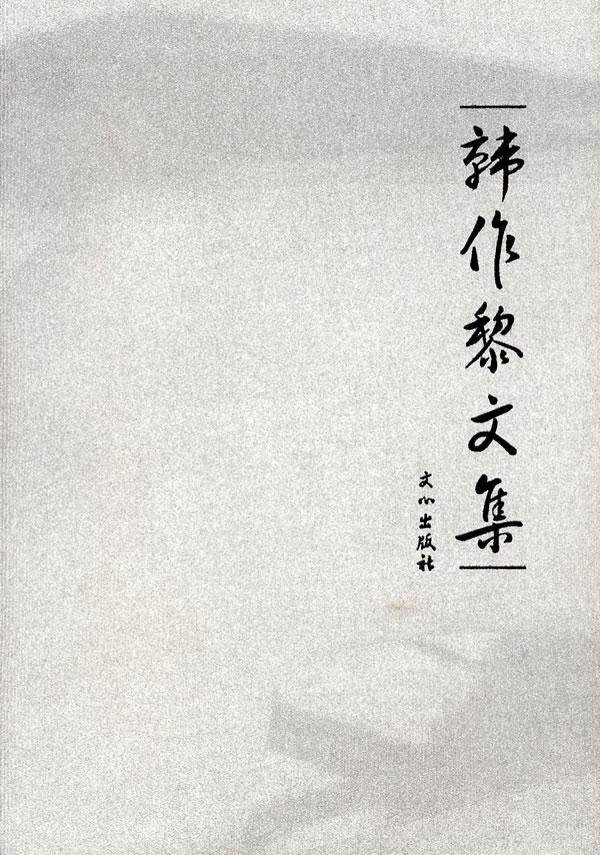 韩作黎文集
文心出版社